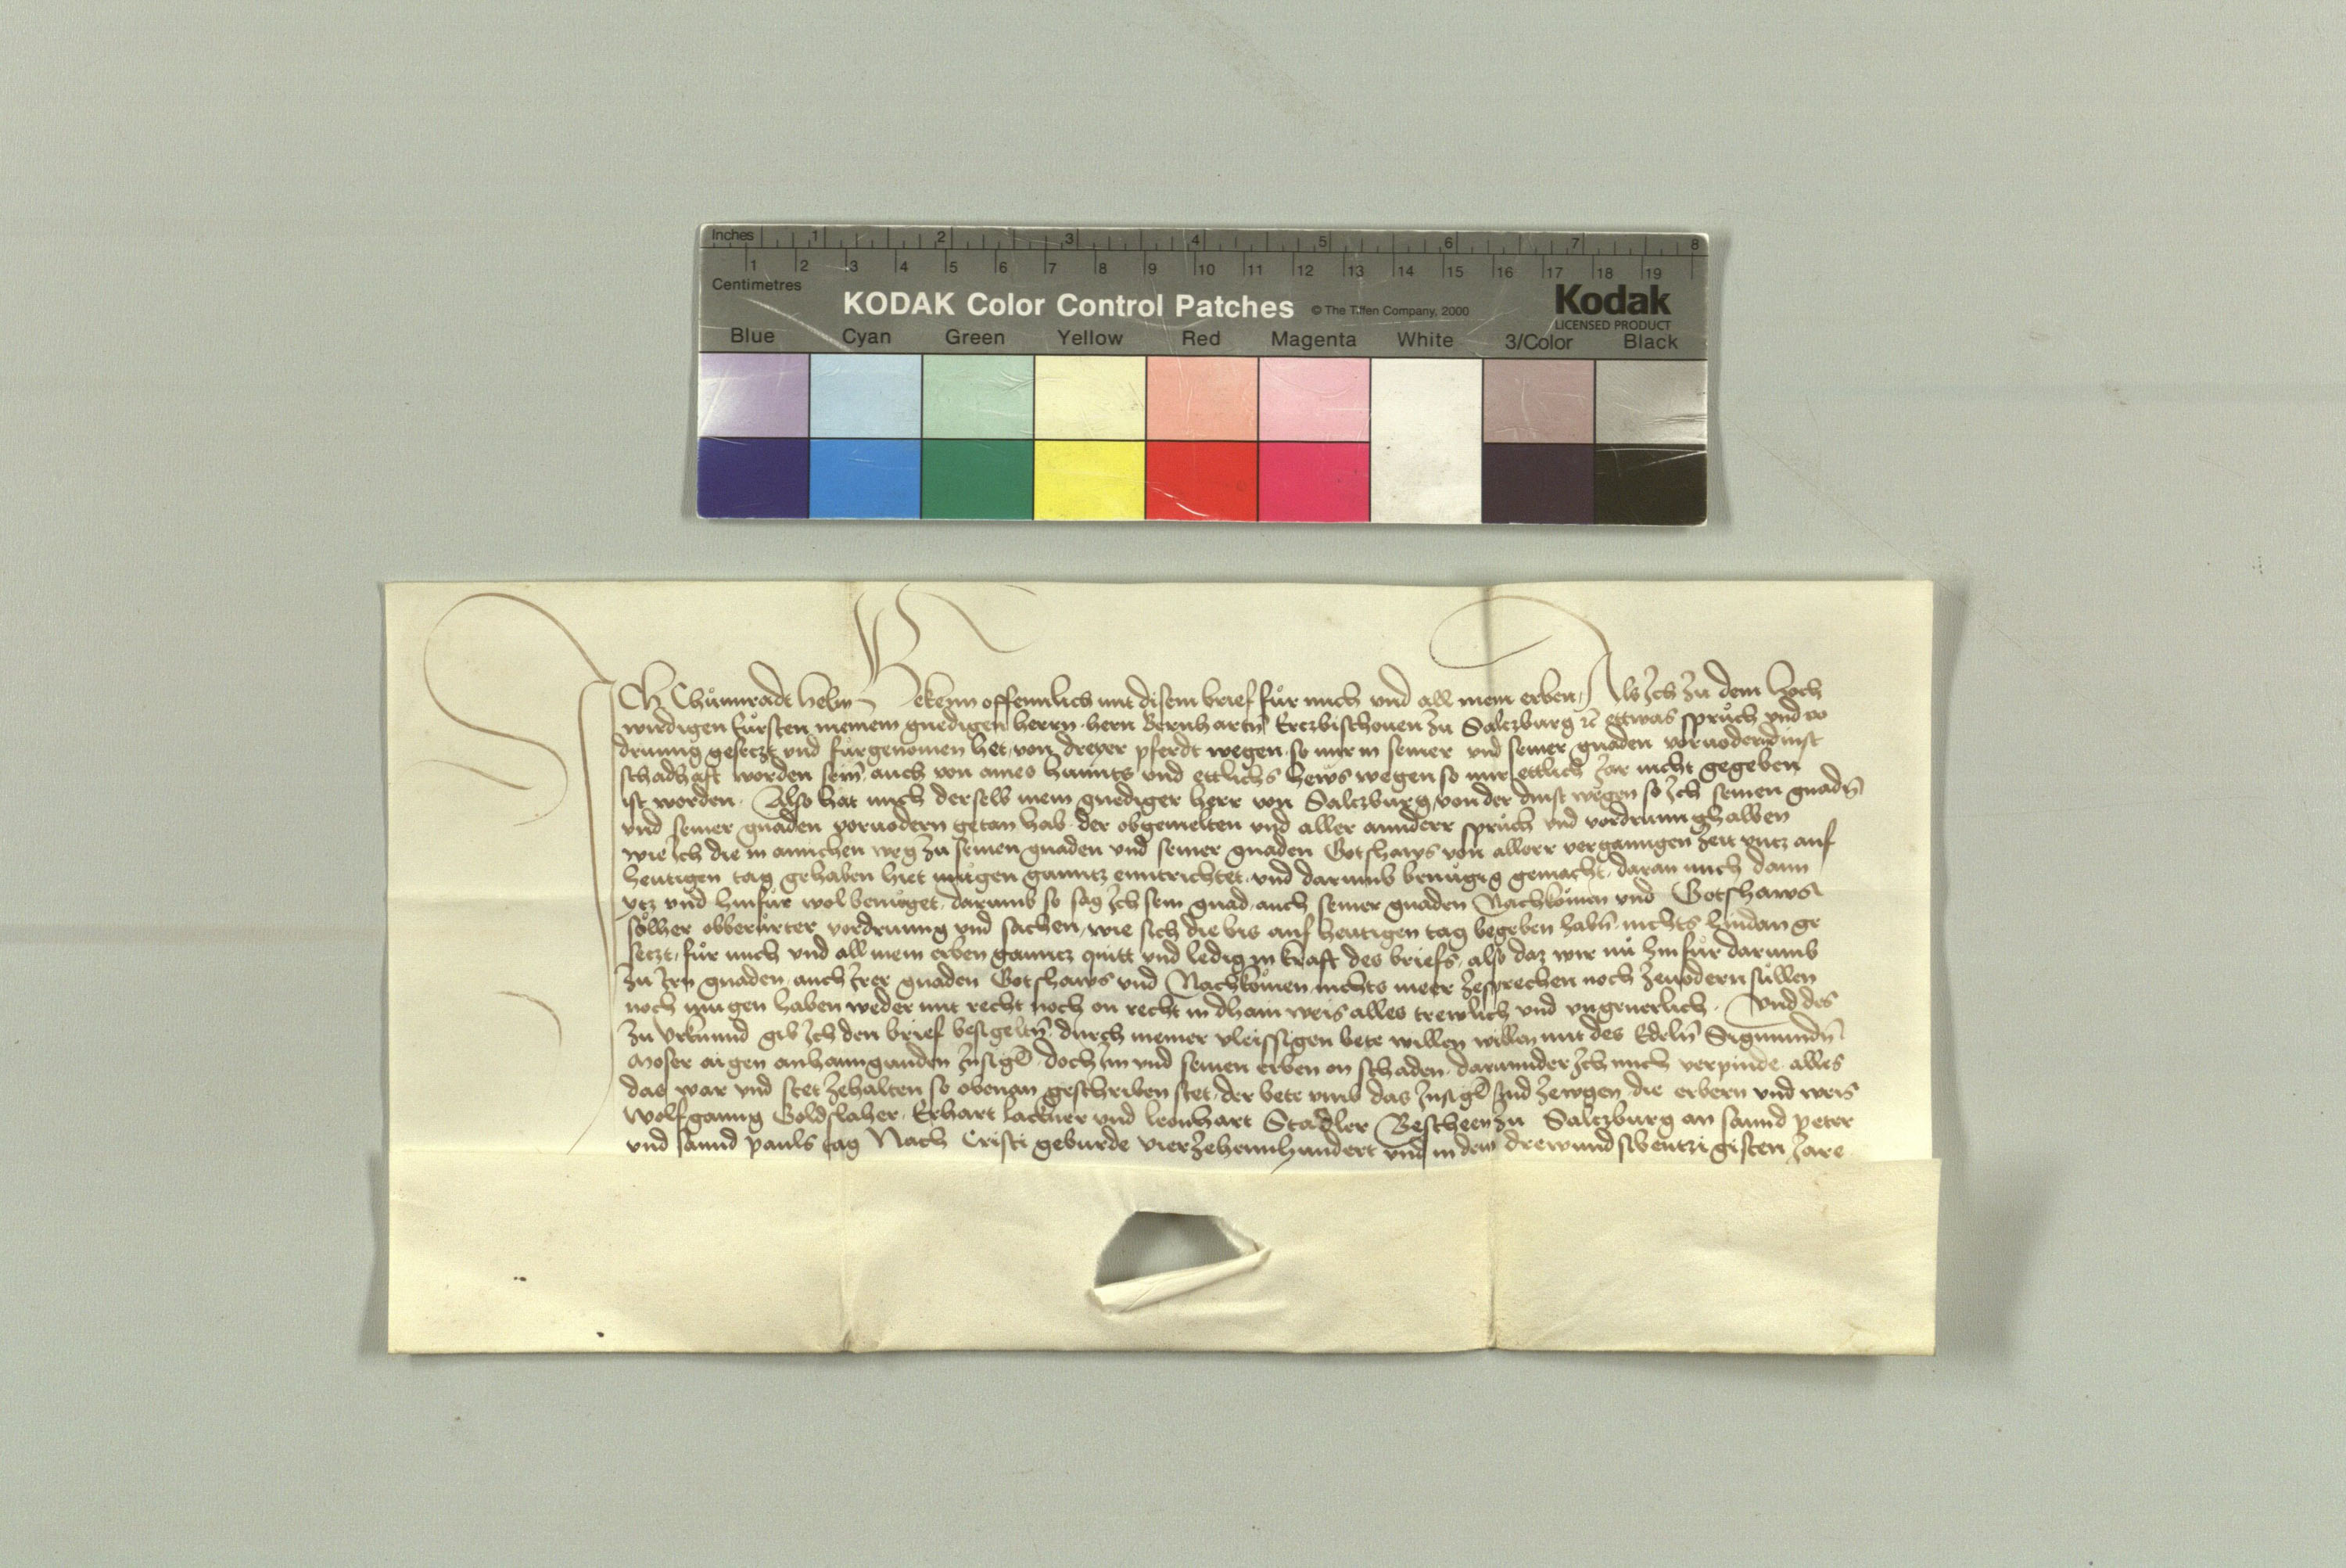 Inches 1 2 3 4 5 6 7 8
1 2 3 4 5 6 7 8 9 10 11 12 13 14 15 16 17 18 19
Centimetres
KODAK Color Control Patches © The Tiffen Company, 2000 Kodak
LICENSED PRODUCT
Blue Cyan Green Yellow Red Magenta White 3/Color Black
ICh Chůnnradt Helm Bekenn offennlich mit disem brief fůr mich vnd all mein erben, Als Ich zu dem Hoch
wirdigen fůrsten meinem gnedigen herrn hern Bernhartn̄ Erczbischouen zu Salczburg ꝛc̄ ettwas sprůch vnd vo
drunng geseczt vnd fůrgenomen het, von dreyer pferdt wegen so mir in seiner vnd seiner gnaden voruodern dinst
schadhaft worden sein, auch von aines huints vnd ettlichs hews wegen so mir ettlich Jar nicht gegeben
ist worden. Also hat mich derselb mein gnediger herr von Salczburg, von der dinst wegen so Ich seinen gnadn̄
vnd seiner gnaden voruodern getan hab, der obgemelten vnd aller annderr sprůch vnd vordrung halben
wie Ich die in ainichen weg zu seinen gnaden vnd seiner gnaden Gotshaws von allerr vergangen zeit vntz auf
heutigen tag gehaben hiet můgen ganntz enntrichtet, vnd darumb benůgig gemacht, daran mich dann
ytz vnd hinfůr wol benůget, darumb so sag Ich sein gnad, auch seiner gnaden Nachkomen vnd Gotshaws
sölher obberůrter vordrunng vnd sachen, wie sich die bis auf heutigen tag begeben habn̄ nichts hindan ge
seczt, fůr mich vnd all mein erben ganntz quitt vnd ledig in kraft des briefs, also daz wir nů hinfůr darumb
zu Irn gnaden, auch Irer gnaden Gotshaws vnd Nachkömen nichts meer zesprechen noch zeuodern sůllen
noch mugen haben weder mit recht noch on recht in dhain weis alles trewlich vnd vngeuerlich. Vnd des
zu vrkunnd gib Ich den brief besigeltn̄ durch meiner vleissigen bete willen willen mit des Edeln̄ Sigmundn̄
Moser aigen anhanngunden Insigl̄, doch Im vnd seinen erben on schaden, darunnder Ich mich verpinde alles
das war vnd stet zehalten so obenan geschriben stet, der bete vmb das Insigl̄ sind zewgen die erbern vnd weis
Wolfganng Goldslaher, Erhart lackner vnd leonhart Stadler Bescheen zu Salczburg an sannd peter
vnd sannd pauls tag Nach Cristi geburde vierzehennhundert vnd in dem drewundsibentzigisten Jare